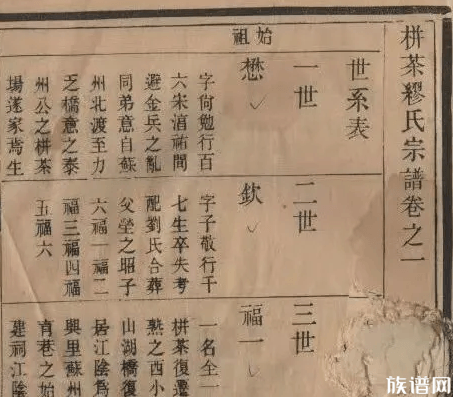 栟茶繆氏宗譜卷之一
世系表
始祖
一世
懋
字尙勉行百
六宋淯祐間
避金兵之亂
同弟意自蘇
州北渡至力
乏橋意之泰
州公之栟茶
場遂家焉生
二世
欽
字子敬行千
七生卒失考
配劉氏合葬
父塋之昭子
六福一福二
福三福四福
五福六
三世
福一
一名全一
栟茶復遷
熟之西小
山湖橋復
居江陰爲
與里蘇州
育巷之始
建祠江陰
族谱网